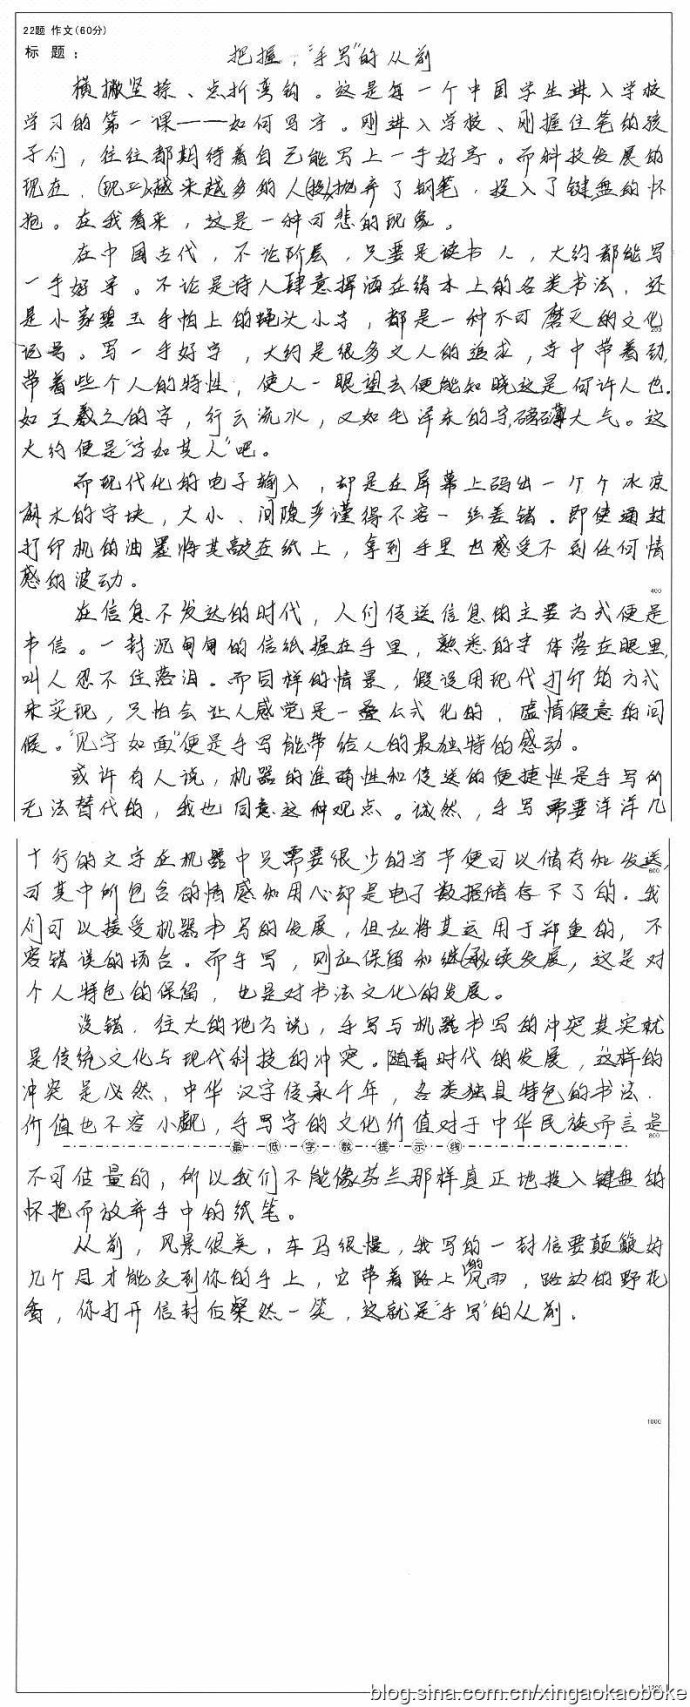 22题 作文(60分)
标 题：
把握，“手写”的从前
横撇竖捺、点折弯钩。这是每一个中国学生进入学校
学习的第一课——如何写字。刚进入学校、刚握住笔的孩
子们，往往都期待着自己能写上一手好字。而科技发展的
现在，越来越多的人抛弃了钢笔，投入了键盘的怀
抱。在我看来，这是一种可悲的现象。
在中国古代，不论阶层，只要是读书人，大约都能写
一手好字。不论是诗人肆意挥洒在绢本上的各类书法，还
是小家碧玉手帕上的蝇头小字，都是一种不可磨灭的文化
记号。写一手好字，大约是很多文人的追求，字中带着劲，
带着些个人的特性，使人一眼望去便能知晓这是何许人也。
如王羲之的字，行云流水，又如毛泽东的字，磅礴大气。这
大约便是“字如其人”吧。
而现代化的电子输入，却是在屏幕上码出一个个冰凉
麻木的字块，大小、间隙严谨得不容一丝差错。即使通过
打印机的油墨将其敲在纸上，拿到手里也感受不到任何情
感的波动。
400
在信息不发达的时代，人们传送信息的主要方式便是
书信。一封沉甸甸的信纸握在手里，熟悉的字体落在眼里，
叫人忍不住落泪。而同样的情景，假设用现代打印的方式
来实现，只怕会让人感觉是一叠公式化的，虚情假意的问
候。“见字如面”便是手写能带给人的最独特的感动。
或许有人说，机器的准确性和传送的便捷性是手写所
无法替代的，我也同意这种观点。诚然，手写需要洋洋几
十行的文字在机器中只需要很少的字节便可以储存和发送，
600
可其中所包含的情感和用心却是电子数据储存不了的。我
们可以接受机器书写的发展，但应将其运用于郑重的，不
容错误的场合。而手写，则应保留和继续发展，这是对
个人特色的保留，也是对书法文化的发展。
没错，往大的地方说，手写与机器书写的冲突其实就
是传统文化与现代科技的冲突。随着时代的发展，这样的
冲突是必然，中华汉字传承千年，各类独具特色的书法，
价值也不容小觑，手写字的文化价值对于中华民族而言是
800
最低字数提示线
不可估量的，所以我们不能像芬兰那样真正地投入键盘的
怀抱而放弃手中的纸笔。
从前，风景很美，车马很慢，我写的一封信要颠簸好
几个月才能交到你的手上，它带着路上的风雨，路边的野花
香，你打开信封后粲然一笑，这就是“手写”的从前。
1000
blog.sina.com.cn/xingaokaoboke